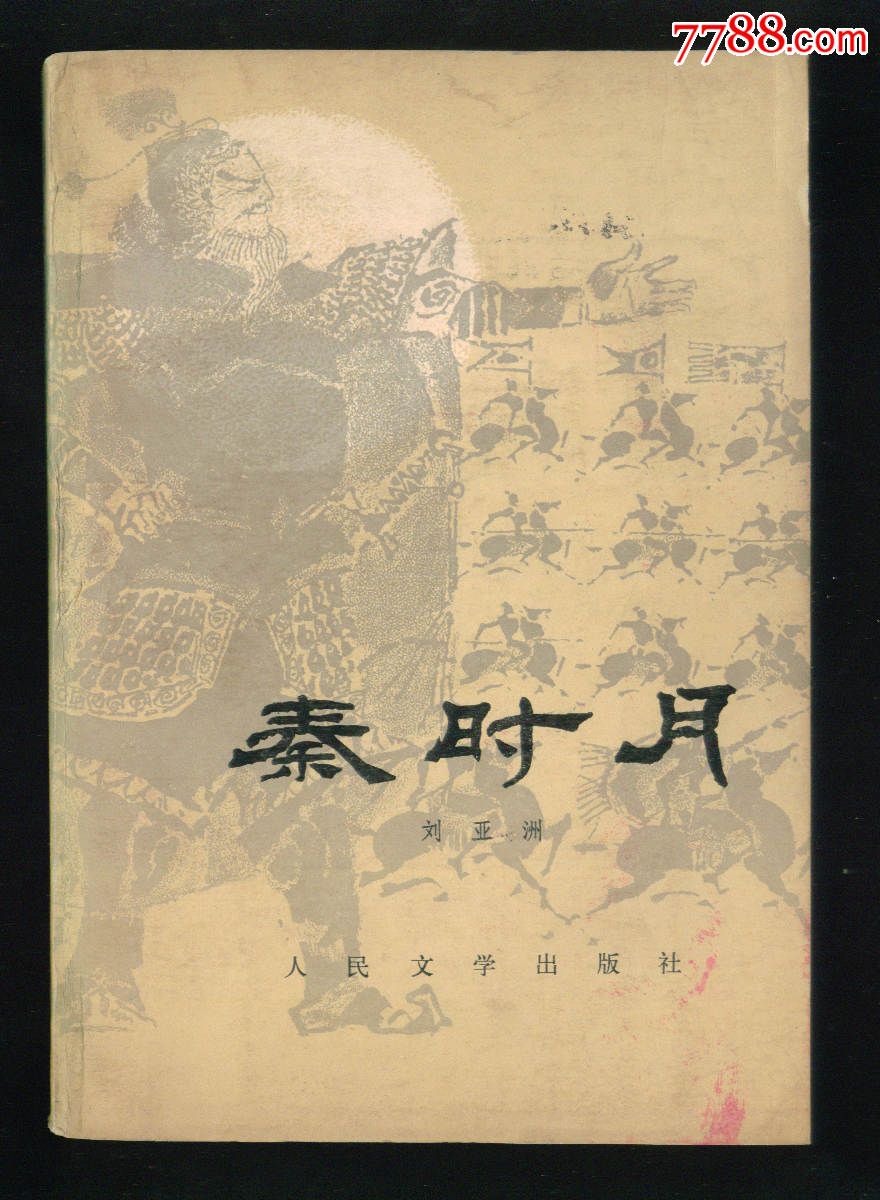 7788.com
秦时月
刘亚洲
人民文学出版社